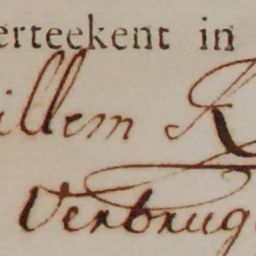 erteekent in
illem K
Verbrug